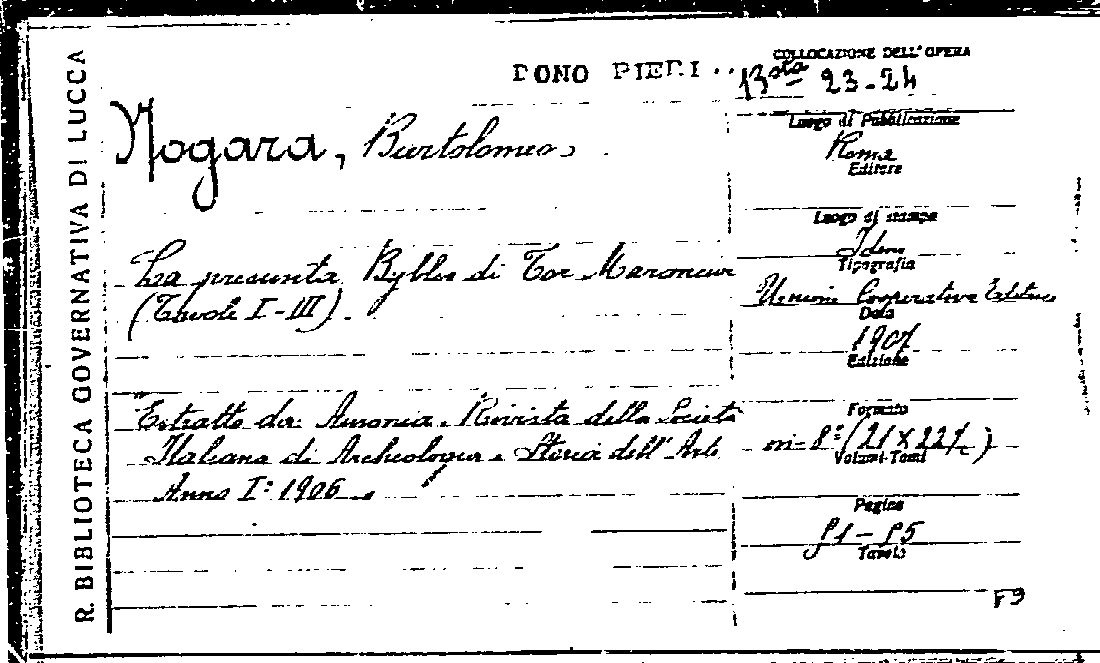 R. BIBLIOTECA GOVERNATIVA DI LUCCA
DONO PIERI
COLLOCAZIONE DELL'OPERA
Bsta 23-24
Nogara, Bartolomeo
La presunta Byblis di Tor Marancia
(Tavole I-III).
Estratto da: Ausonia. Rivista della Società
Italiana di Archeologia e Storia dell'Arte
Anno I: 1906
Luogo di Pubblicazione
Roma
Editore
Luogo di stampa
Idem
Tipografia
Unione Cooperativa Editrice
Data
1907
Edizione
Formato
in-8°
Volumi-Tomi
Pagine
51-55
Tavole
F9